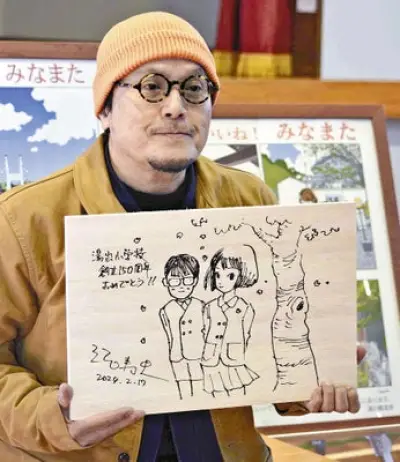 みなまた
いいね! みなまた
湯出小学校
創立150周年
おめでとう!!
2024.2.17